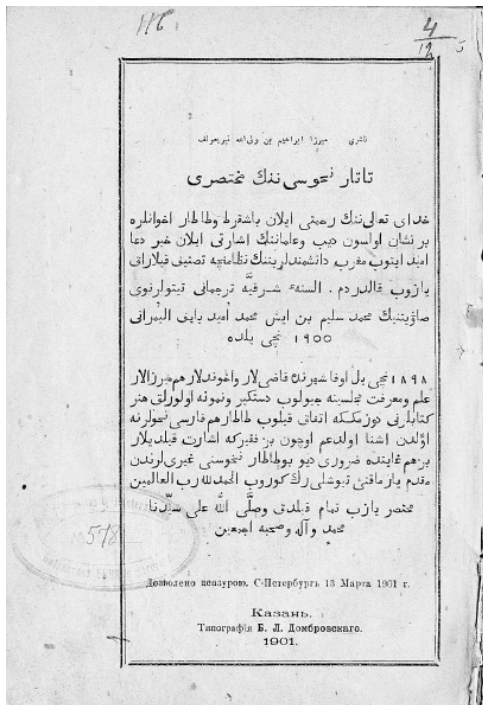 4
12
ناشری ميرزا ابراهيم بن ولی‌الله
تاتار نحوسی‌ننك مختصری
خدای تعالی‌ننك رحمتی ايلان باشقرط وطاطار اخوانلره
بر نشان اولسون ديب وعلماننك اشارتی ايلان خير دعا
اميد ايتوب مغرب دانشمندلريننك نظامنچه تصنيف قيلاراق
يازوب قالدردم . السنهٔ شرقيّه ترجمانی تيتولارنوی
محمد سليم بن ايش محمد اميد بايف اليمرانی
۱۹۰۰ نچی يلده
۱۸۹۸ نچی يل اوفا شهرنده قاضی‌لار واخوندلار هم ميرزالار
علم ومعرفت مجلسينه جيولوب دستكير ونمونه اولورلق هنر
كتابلرنی دوزمككه اتفاق قيلوب طاطار هم فارسی نحولرنه
اوّلدن اشنا اولدغم اوچون بر فقيركه اشارت قيلديلار
بن هم غايتده ضروری ديو بو طاطار نحوسنی غيری‌لرندن
مقدم يازماقنی تيوشلی‌رك كوروب الحمد لله رب العالمين
مختصر يازب تمام قيلدق وصلَّی اللّٰه علی سيّدنا
محمد وآله وصحبه اجمعين
№ 578
Дозволено цензурою. С-Петербургъ 13 Марта 1901 г.
Казань.
Типографія Б. Л. Домбровскаго.
1901.